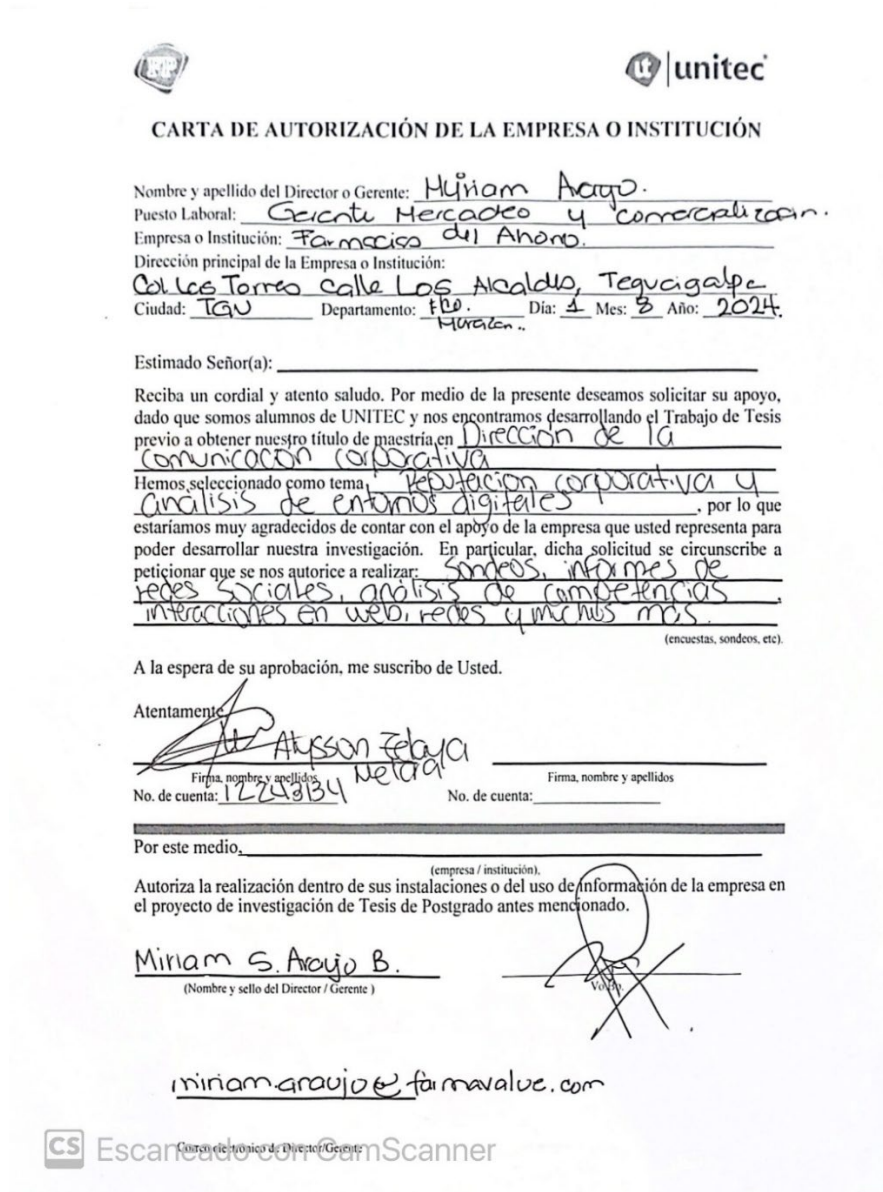 FP
ut unitec
CARTA DE AUTORIZACIÓN DE LA EMPRESA O INSTITUCIÓN
Nombre y apellido del Director o Gerente: Miriam Araujo.
Puesto Laboral: Gerente Mercadeo y comercialización.
Empresa o Institución: Farmacias del Ahorro.
Dirección principal de la Empresa o Institución:
Col Las Torres calle Los Alcaldes, Tegucigalpa
Ciudad: TGU Departamento: Fco. Día: 1 Mes: 8 Año: 2024.
Morazan.
Estimado Señor(a):
Reciba un cordial y atento saludo. Por medio de la presente deseamos solicitar su apoyo,
dado que somos alumnos de UNITEC y nos encontramos desarrollando el Trabajo de Tesis
previo a obtener nuestro título de maestría en Dirección de la
Comunicación corporativa
Hemos seleccionado como tema Reputación corporativa y
análisis de entornos digitales, por lo que
estaríamos muy agradecidos de contar con el apoyo de la empresa que usted representa para
poder desarrollar nuestra investigación. En particular, dicha solicitud se circunscribe a
peticionar que se nos autorice a realizar: Sondeos, informes de
redes sociales, análisis de competencias,
interacciones en web, redes y muchos más.
(encuestas, sondeos, etc).
A la espera de su aprobación, me suscribo de Usted.
Atentamente,
Alysson Zelaya
Firma, nombre y apellidos Firma, nombre y apellidos
No. de cuenta: 12243134 No. de cuenta:
Por este medio,
(empresa / institución).
Autoriza la realización dentro de sus instalaciones o del uso de información de la empresa en
el proyecto de investigación de Tesis de Postgrado antes mencionado.
Miriam S. Araujo B.
(Nombre y sello del Director / Gerente ) Vo. Bo.
miriam.araujo@farmavalue.com
Correo electrónico de Director/Gerente
CS Escaneado con CamScanner